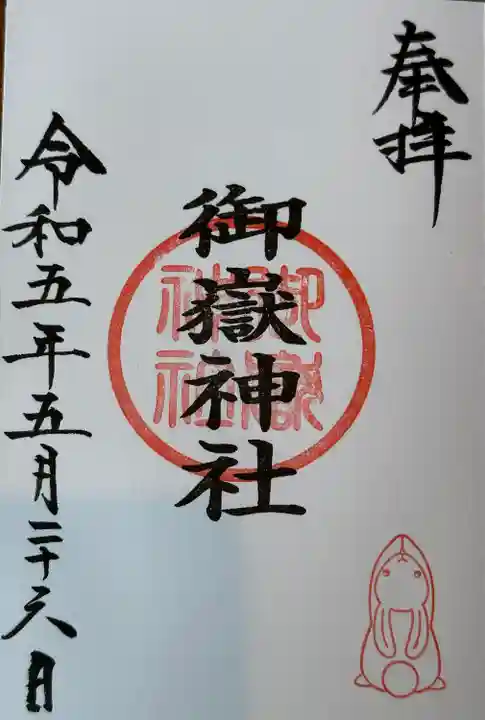 奉拝
御嶽神社
御嶽
神社
令和五年五月二十六日